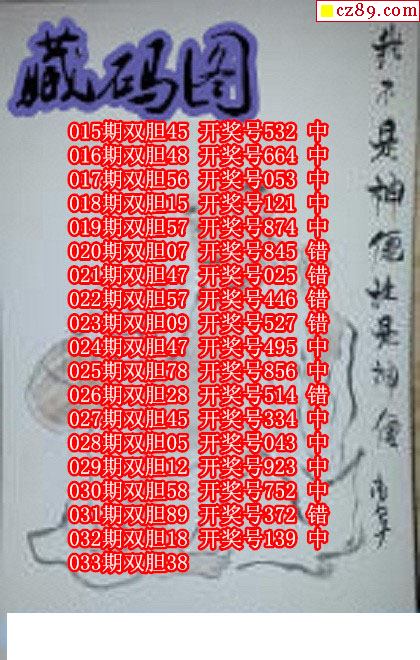 cz89.com
藏码图
015期双胆45 开奖号532 中
016期双胆48 开奖号664 中
017期双胆56 开奖号053 中
018期双胆15 开奖号121 中
019期双胆57 开奖号874 中
020期双胆07 开奖号845 错
021期双胆47 开奖号025 错
022期双胆57 开奖号446 错
023期双胆09 开奖号527 错
024期双胆47 开奖号495 中
025期双胆78 开奖号856 中
026期双胆28 开奖号514 错
027期双胆45 开奖号334 中
028期双胆05 开奖号043 中
029期双胆12 开奖号923 中
030期双胆58 开奖号752 中
031期双胆89 开奖号372 错
032期双胆18 开奖号139 中
033期双胆38
我不是神仙
是神仙